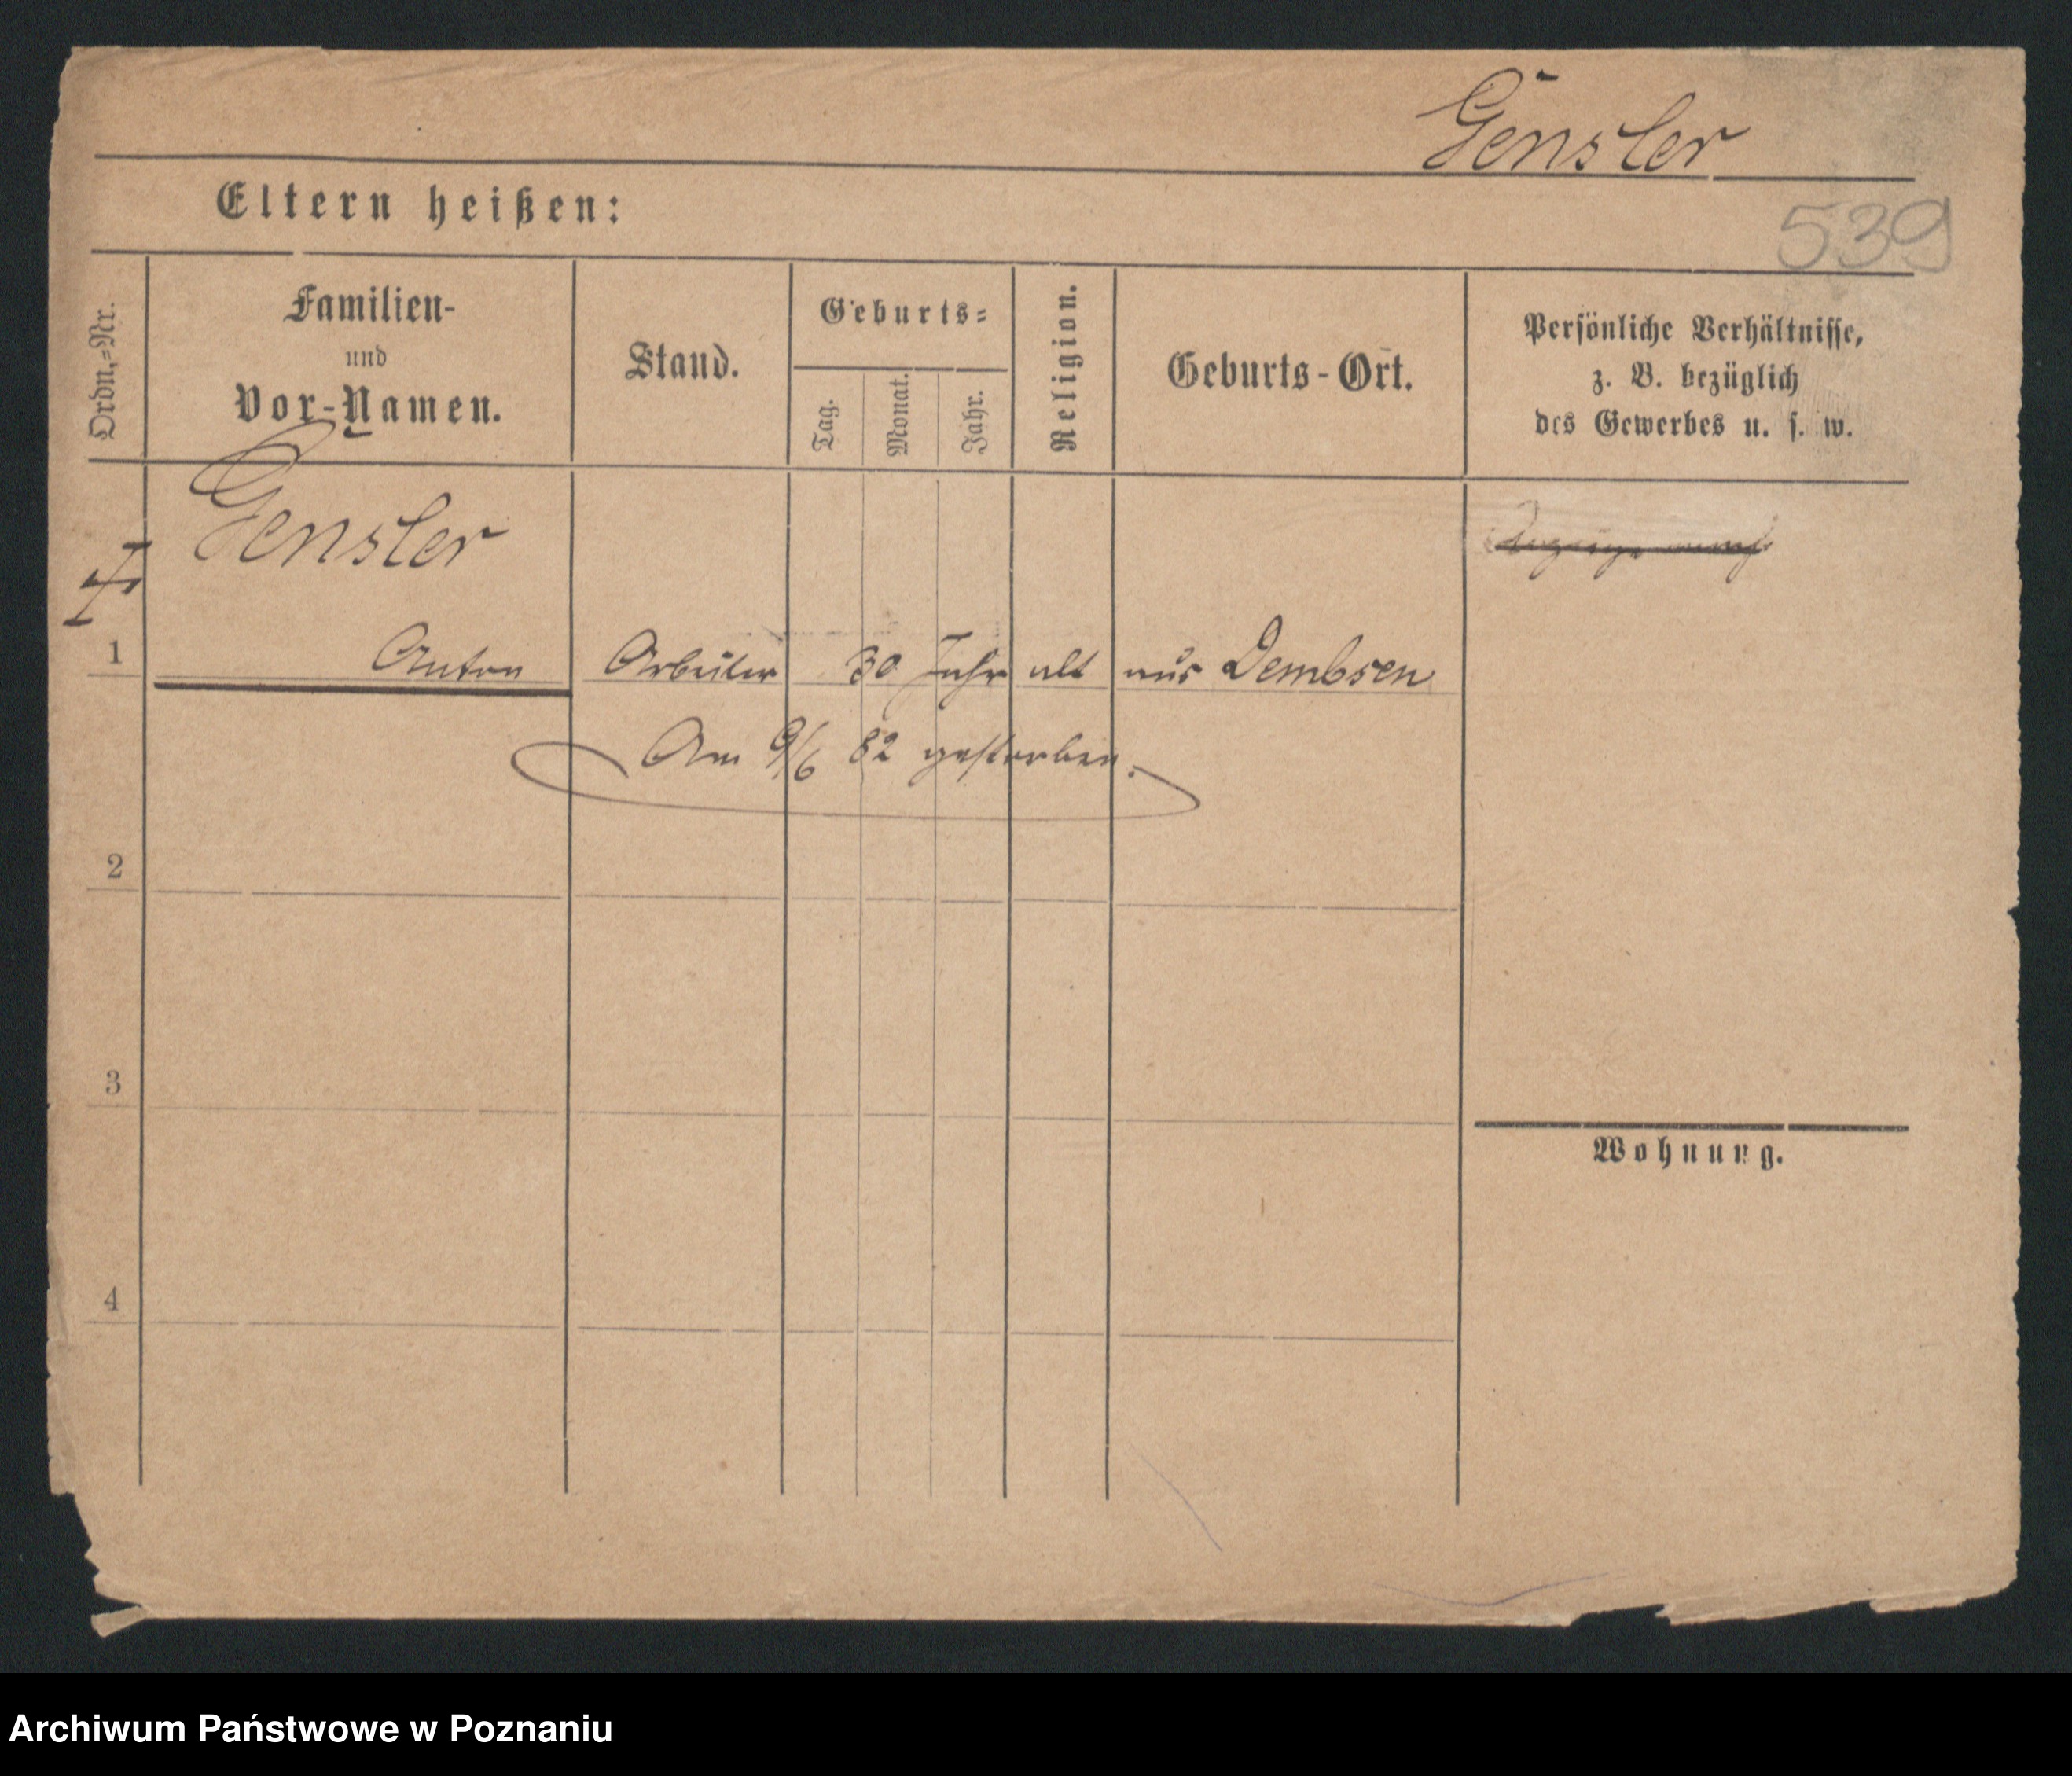 Gensler
Eltern heißen:
539
Ordn.=Nr.
Familien-
und
Vor-Namen.
Stand.
Geburts=
Tag.
Monat.
Jahr.
Religion.
Geburts-Ort.
Persönliche Verhältnisse,
z. B. bezüglich
des Gewerbes u. s. w.
Gensler
1 Anton Arbeiter 30 Jahr alt aus Dembsen
Am 9/6 82 gestorben.
2
3
Wohnung.
4
Archiwum Państwowe w Poznaniu